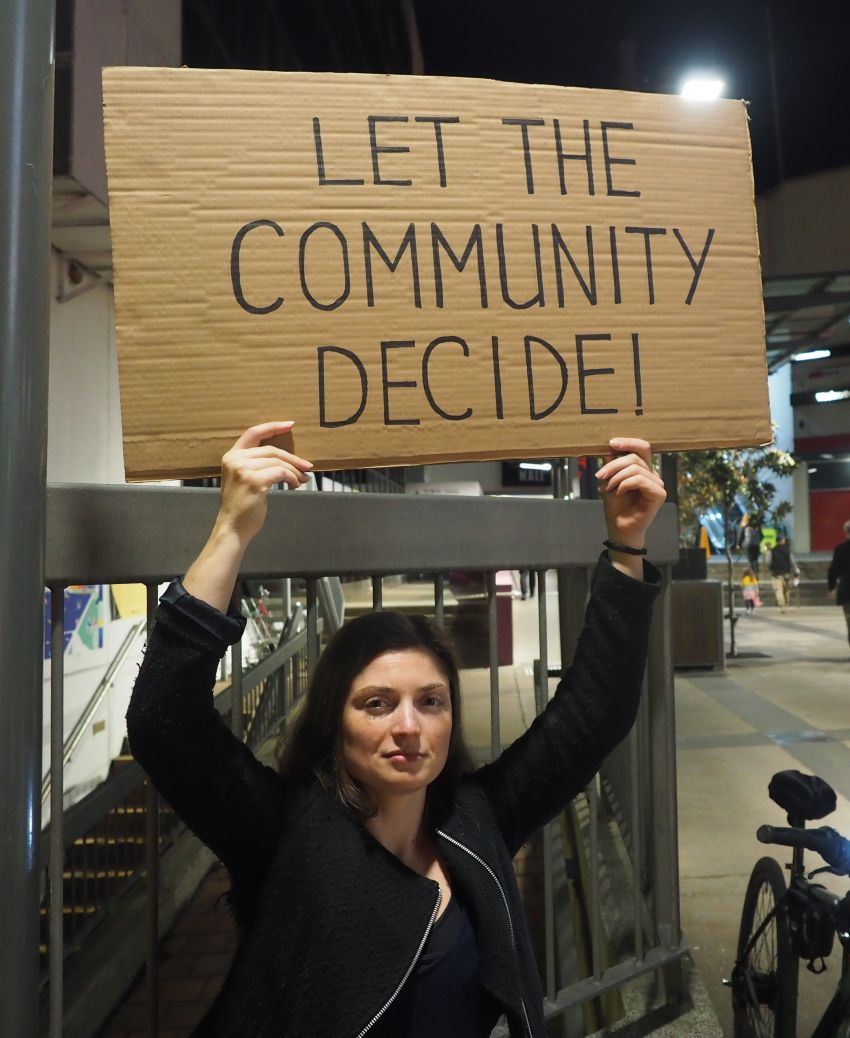 LET THE
COMMUNITY
DECIDE!
MALL